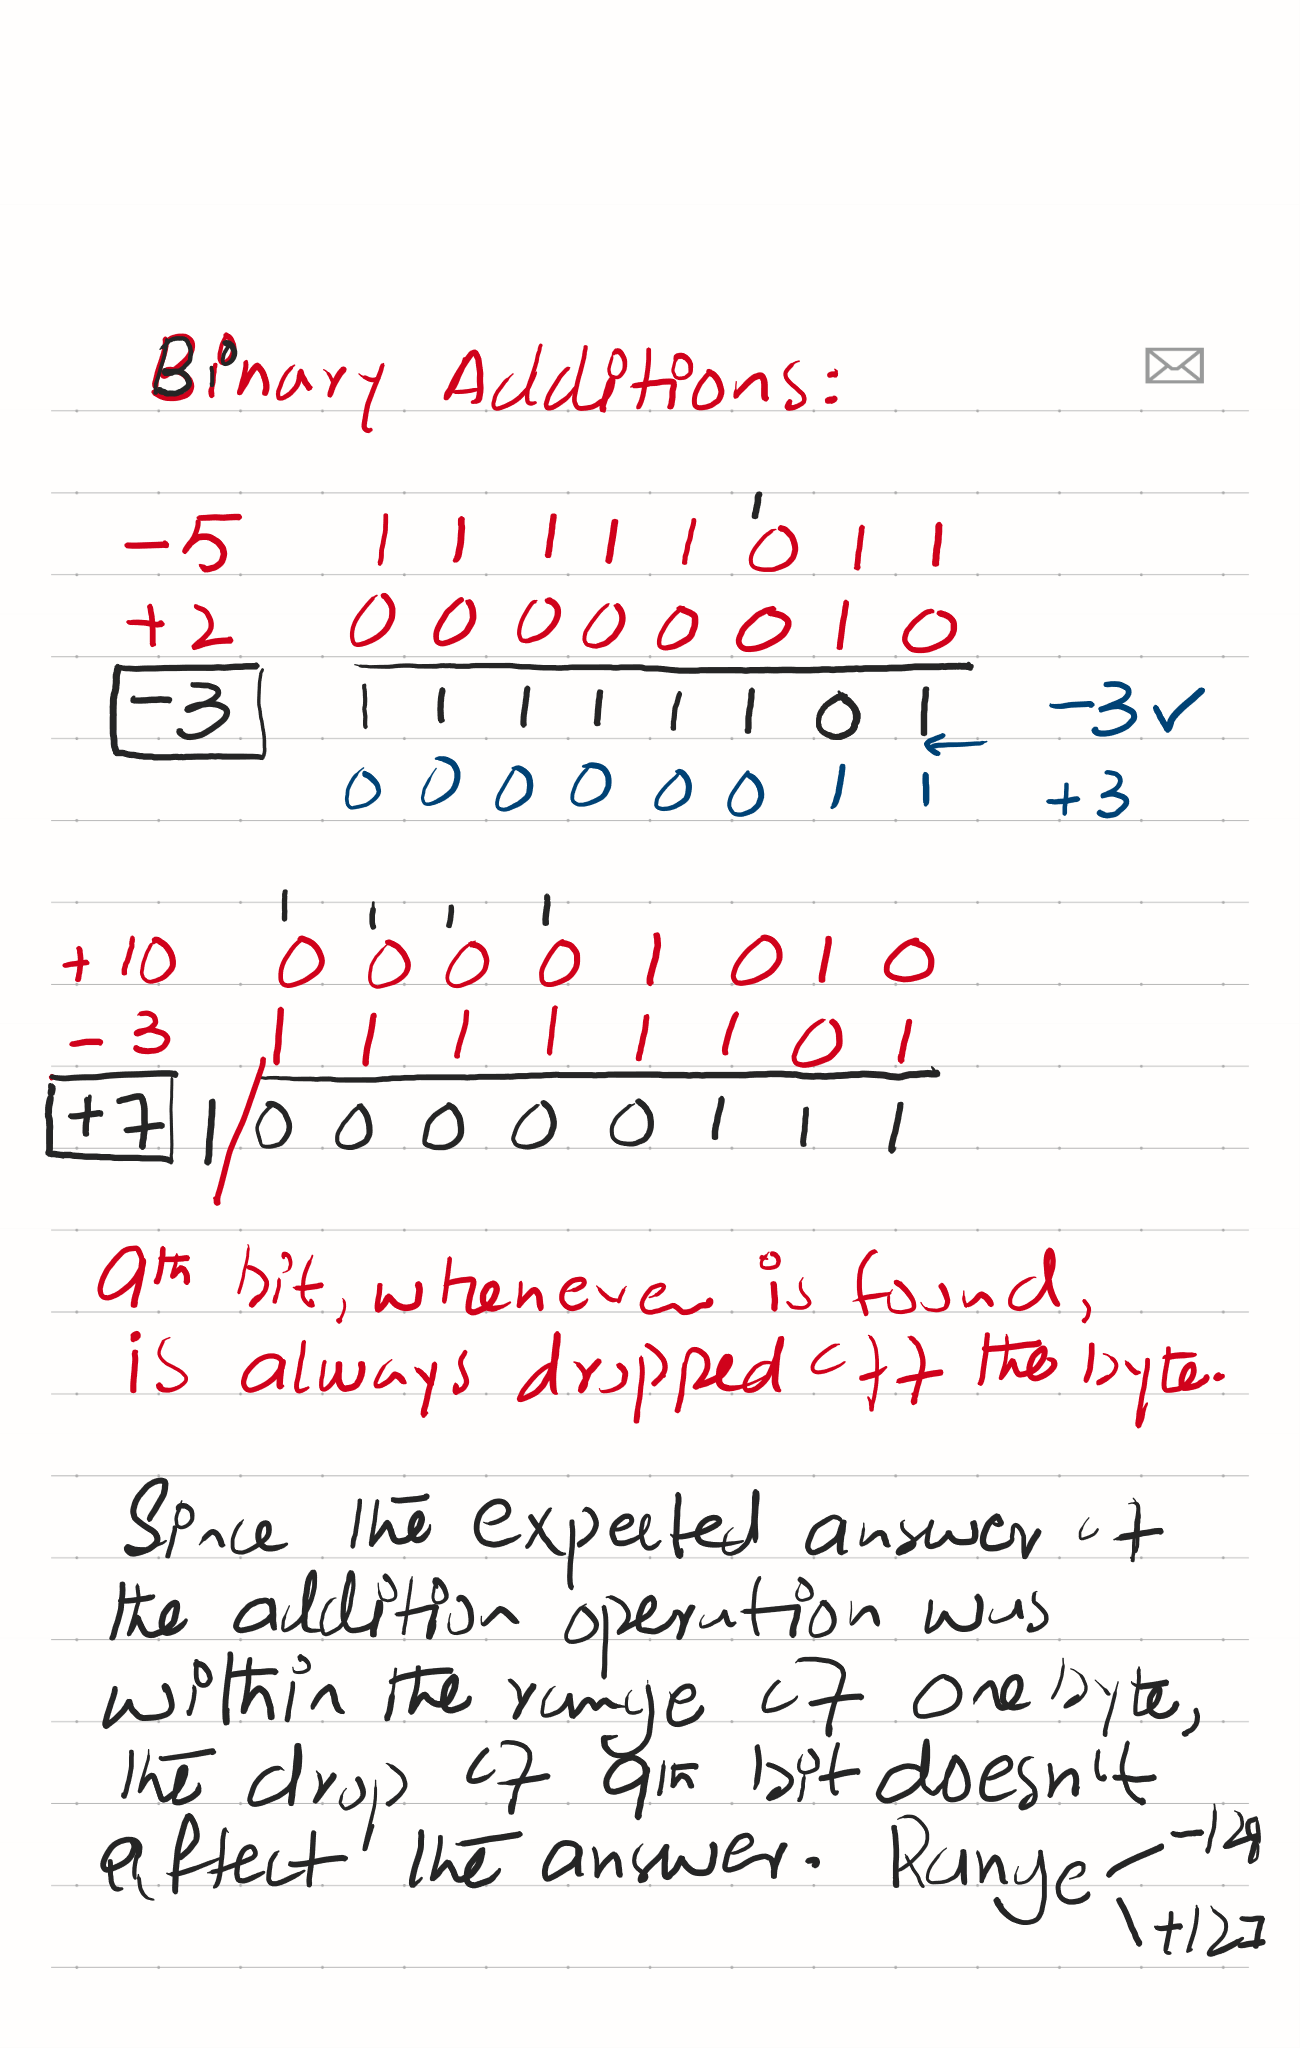 Binary Additions:
1
-5 1 1 1 1 1 0 1 1
+2 0 0 0 0 0 0 1 0
-3 1 1 1 1 1 1 0 1 -3 ✓
←
0 0 0 0 0 0 1 1 +3
1 1 1 1
+10 0 0 0 0 1 0 1 0
-3 1 1 1 1 1 1 0 1
+7 1/0 0 0 0 0 1 1 1
9th bit, whenever is found,
is always dropped off the byte.
Since the expected answer of
the addition operation was
within the range of one byte,
the drop of 9th bit doesn't
affect the answer. Range -128
+127